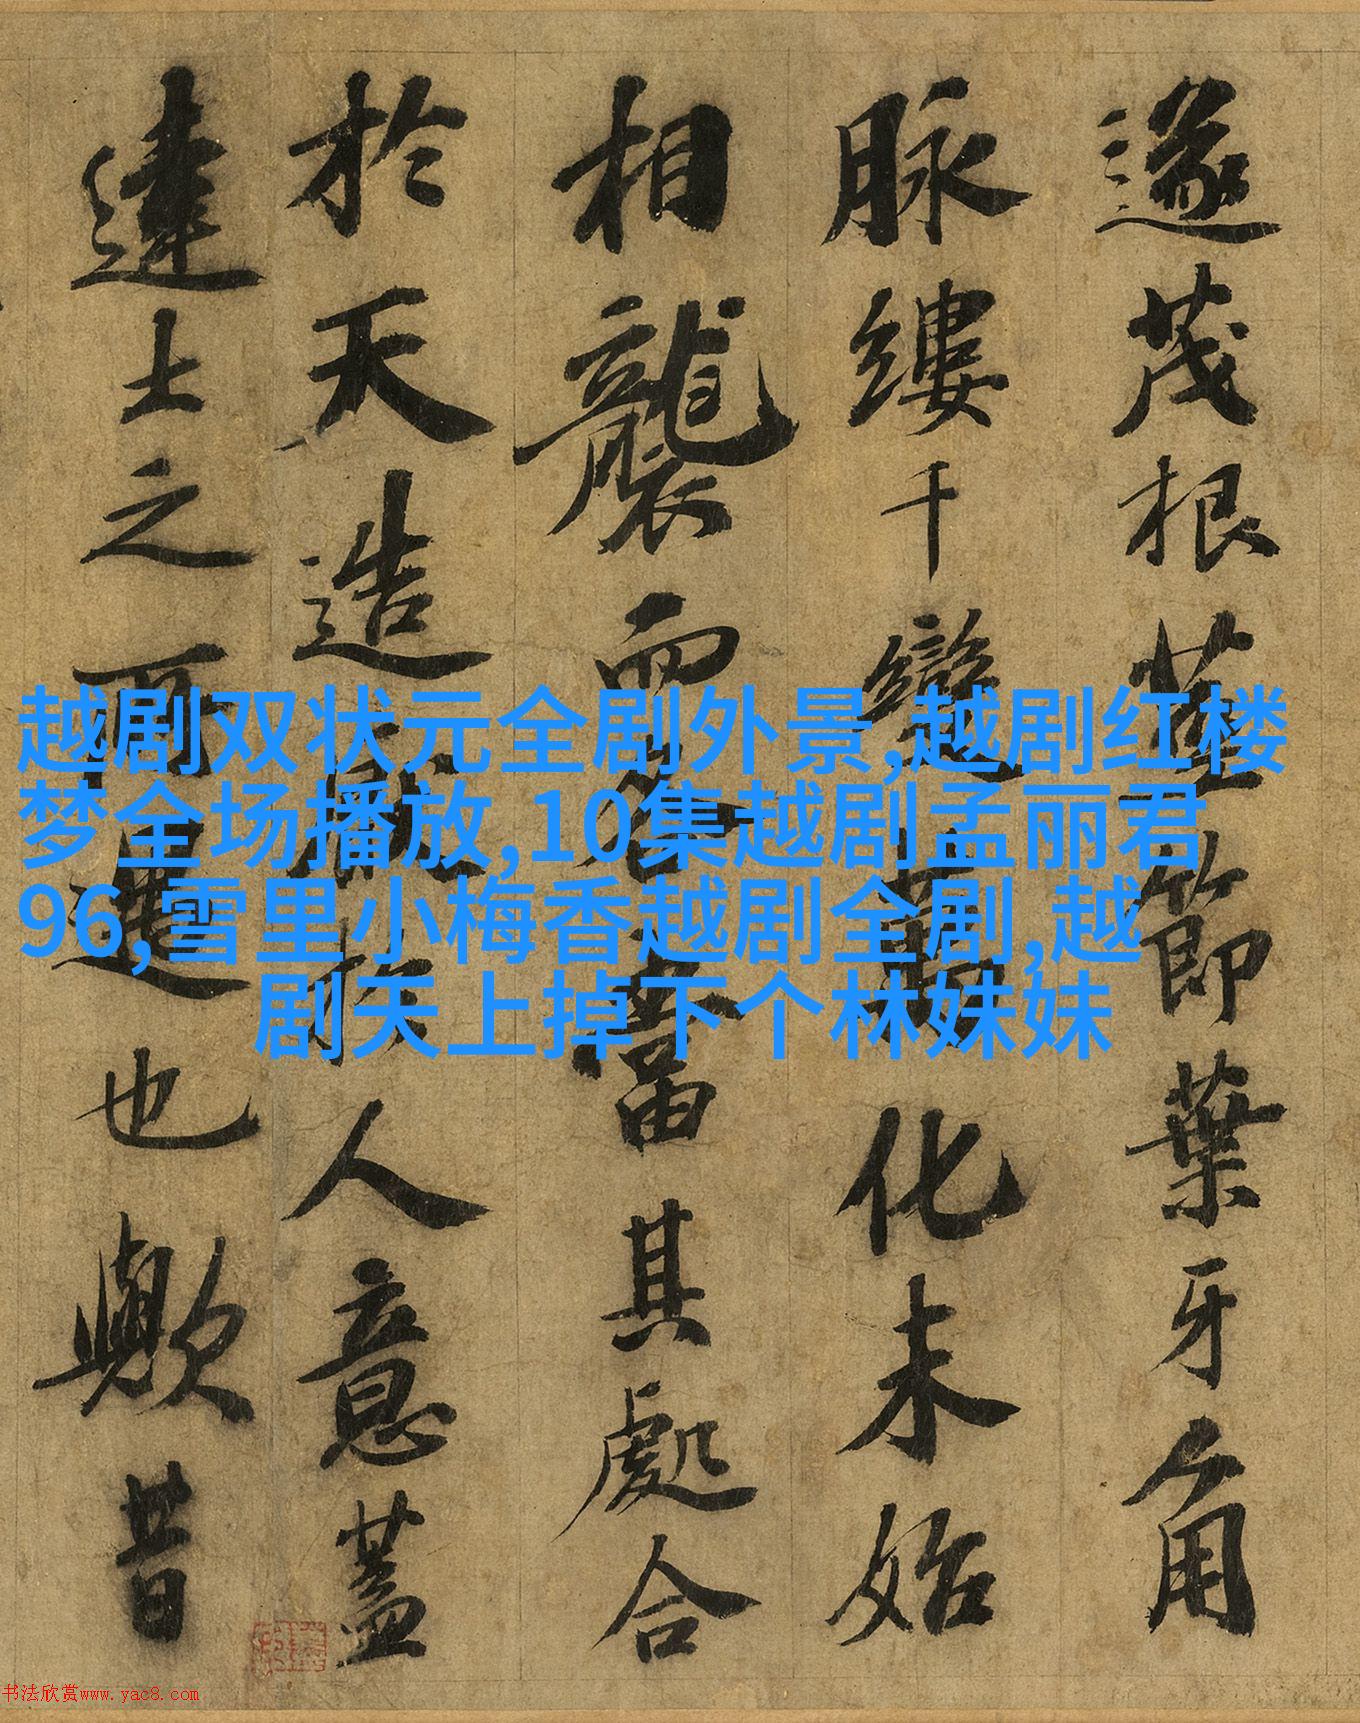 越剧双状元全剧外景,越剧红楼
梦全场播放,10集越剧孟丽君
96,雪里小梅香越剧全剧,越
剧天上掉下个林妹妹
遂茂根莖節葉牙角
脉縷千變萬化未始
相襲而各當其處合
於天造厭於人意蓋
達士之所也歟昔
书法欣赏www.yac8.com